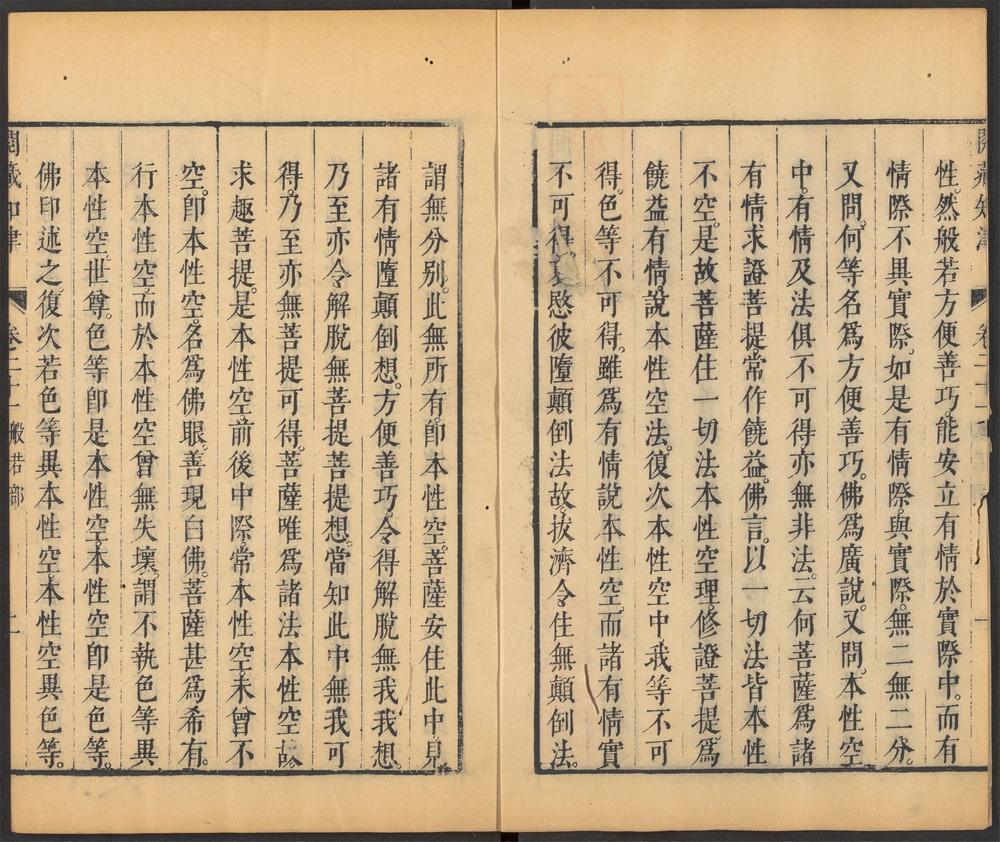 閱藏知津 卷二十一 一
性。然般若方便善巧。能安立有情於實際中。而有
情際不異實際。如是有情際。與實際。無二無二分。
又問。何等名爲方便善巧。佛爲廣說。又問。本性空
中。有情及法俱不可得。亦無非法。云何菩薩爲諸
有情求證菩提常作饒益。佛言。以一切法皆本性
不空。是故菩薩住一切法本性空理。修證菩提。爲
饒益有情。說本性空法。復次本性空中。我等不可
得。色等不可得。雖爲有情說本性空。而諸有情實
不可得。哀愍彼墮顛倒法故。拔濟令住無顛倒法。
謂無分別。此無所有。卽本性空。菩薩安住此中。見
諸有情墮顛倒想。方便善巧。令得解脫無我我想。
乃至亦令解脫無菩提菩提想。當知此中無我可
得。乃至亦無菩提可得。菩薩唯爲諸法本性空故。
求趣菩提。是本性空。前後中際。常本性空。未曾不
空。卽本性空。名爲佛眼。善現白佛。菩薩甚爲希有。
行本性空。而於本性空曾無失壞。謂不執色等異
本性空。世尊。色等卽是本性空。本性空卽是色等。
佛印述之。復次若色等異本性空。本性空異色等。
閱藏知津 卷二十一 般若部 二